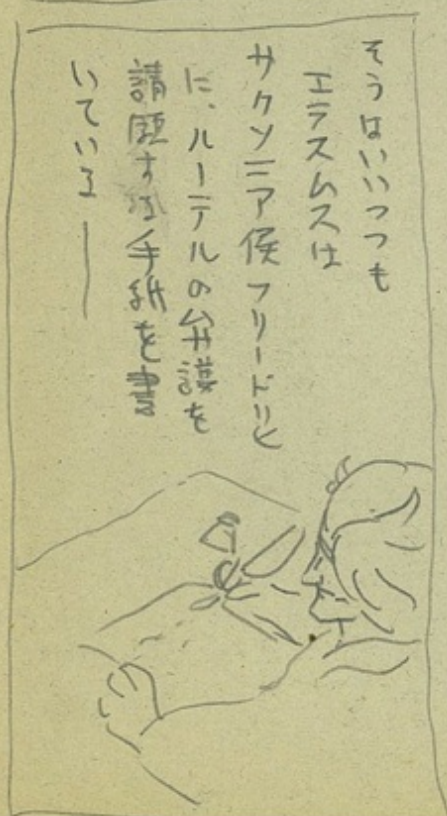 そうはいいつつも
エラスムスは
サクソニア侯フリードリヒ
に、ルーテルの弁護を
請願する手紙を書
いている——